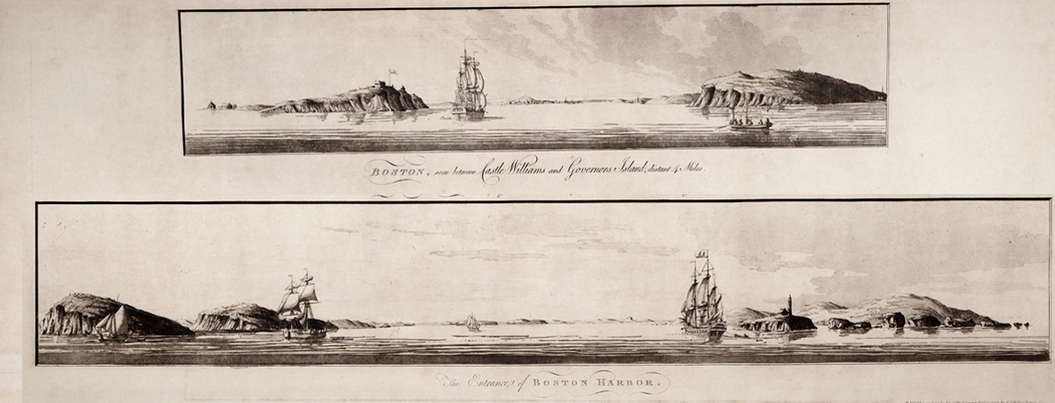 BOSTON, seen between Castle Williams and Governors Island, distant 4 Miles.
The Entrance of BOSTON HARBOR.